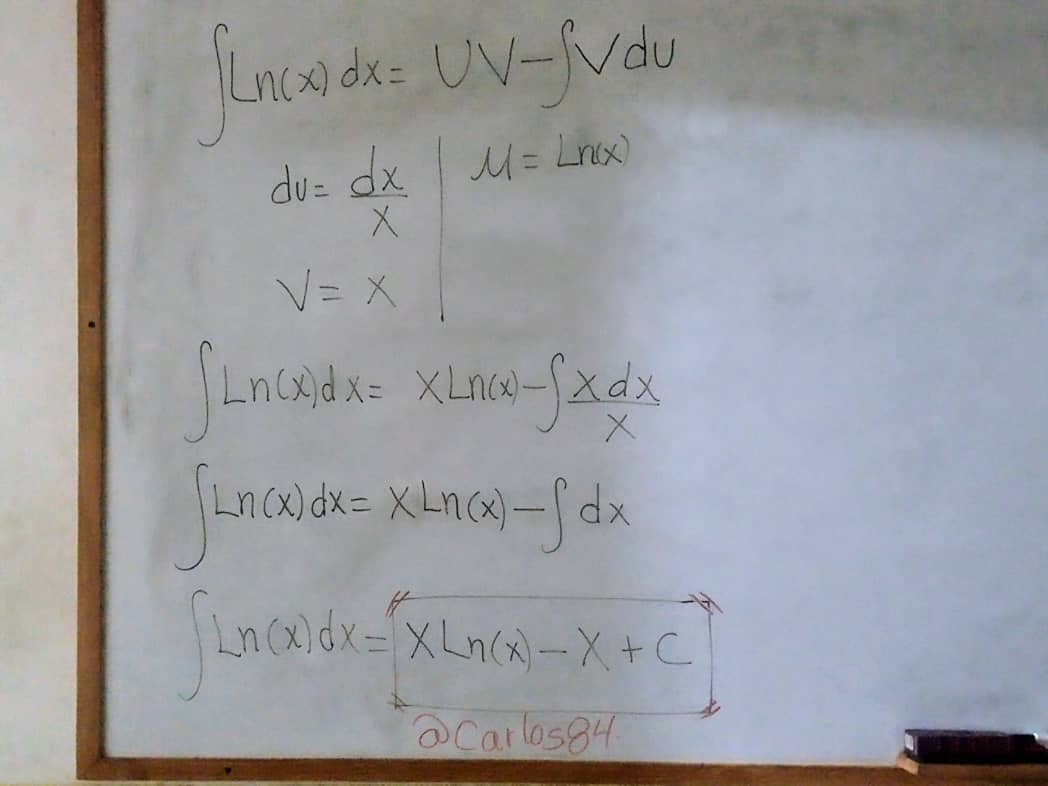 ∫Ln(x) dx = UV-∫Vdu
du = dx/x | u = Ln(x)
V = X
∫Ln(x)dx = XLn(x)-∫xdx/x
∫Ln(x)dx = XLn(x)-∫dx
∫Ln(x)dx = XLn(x)-X+C
@Carlos84